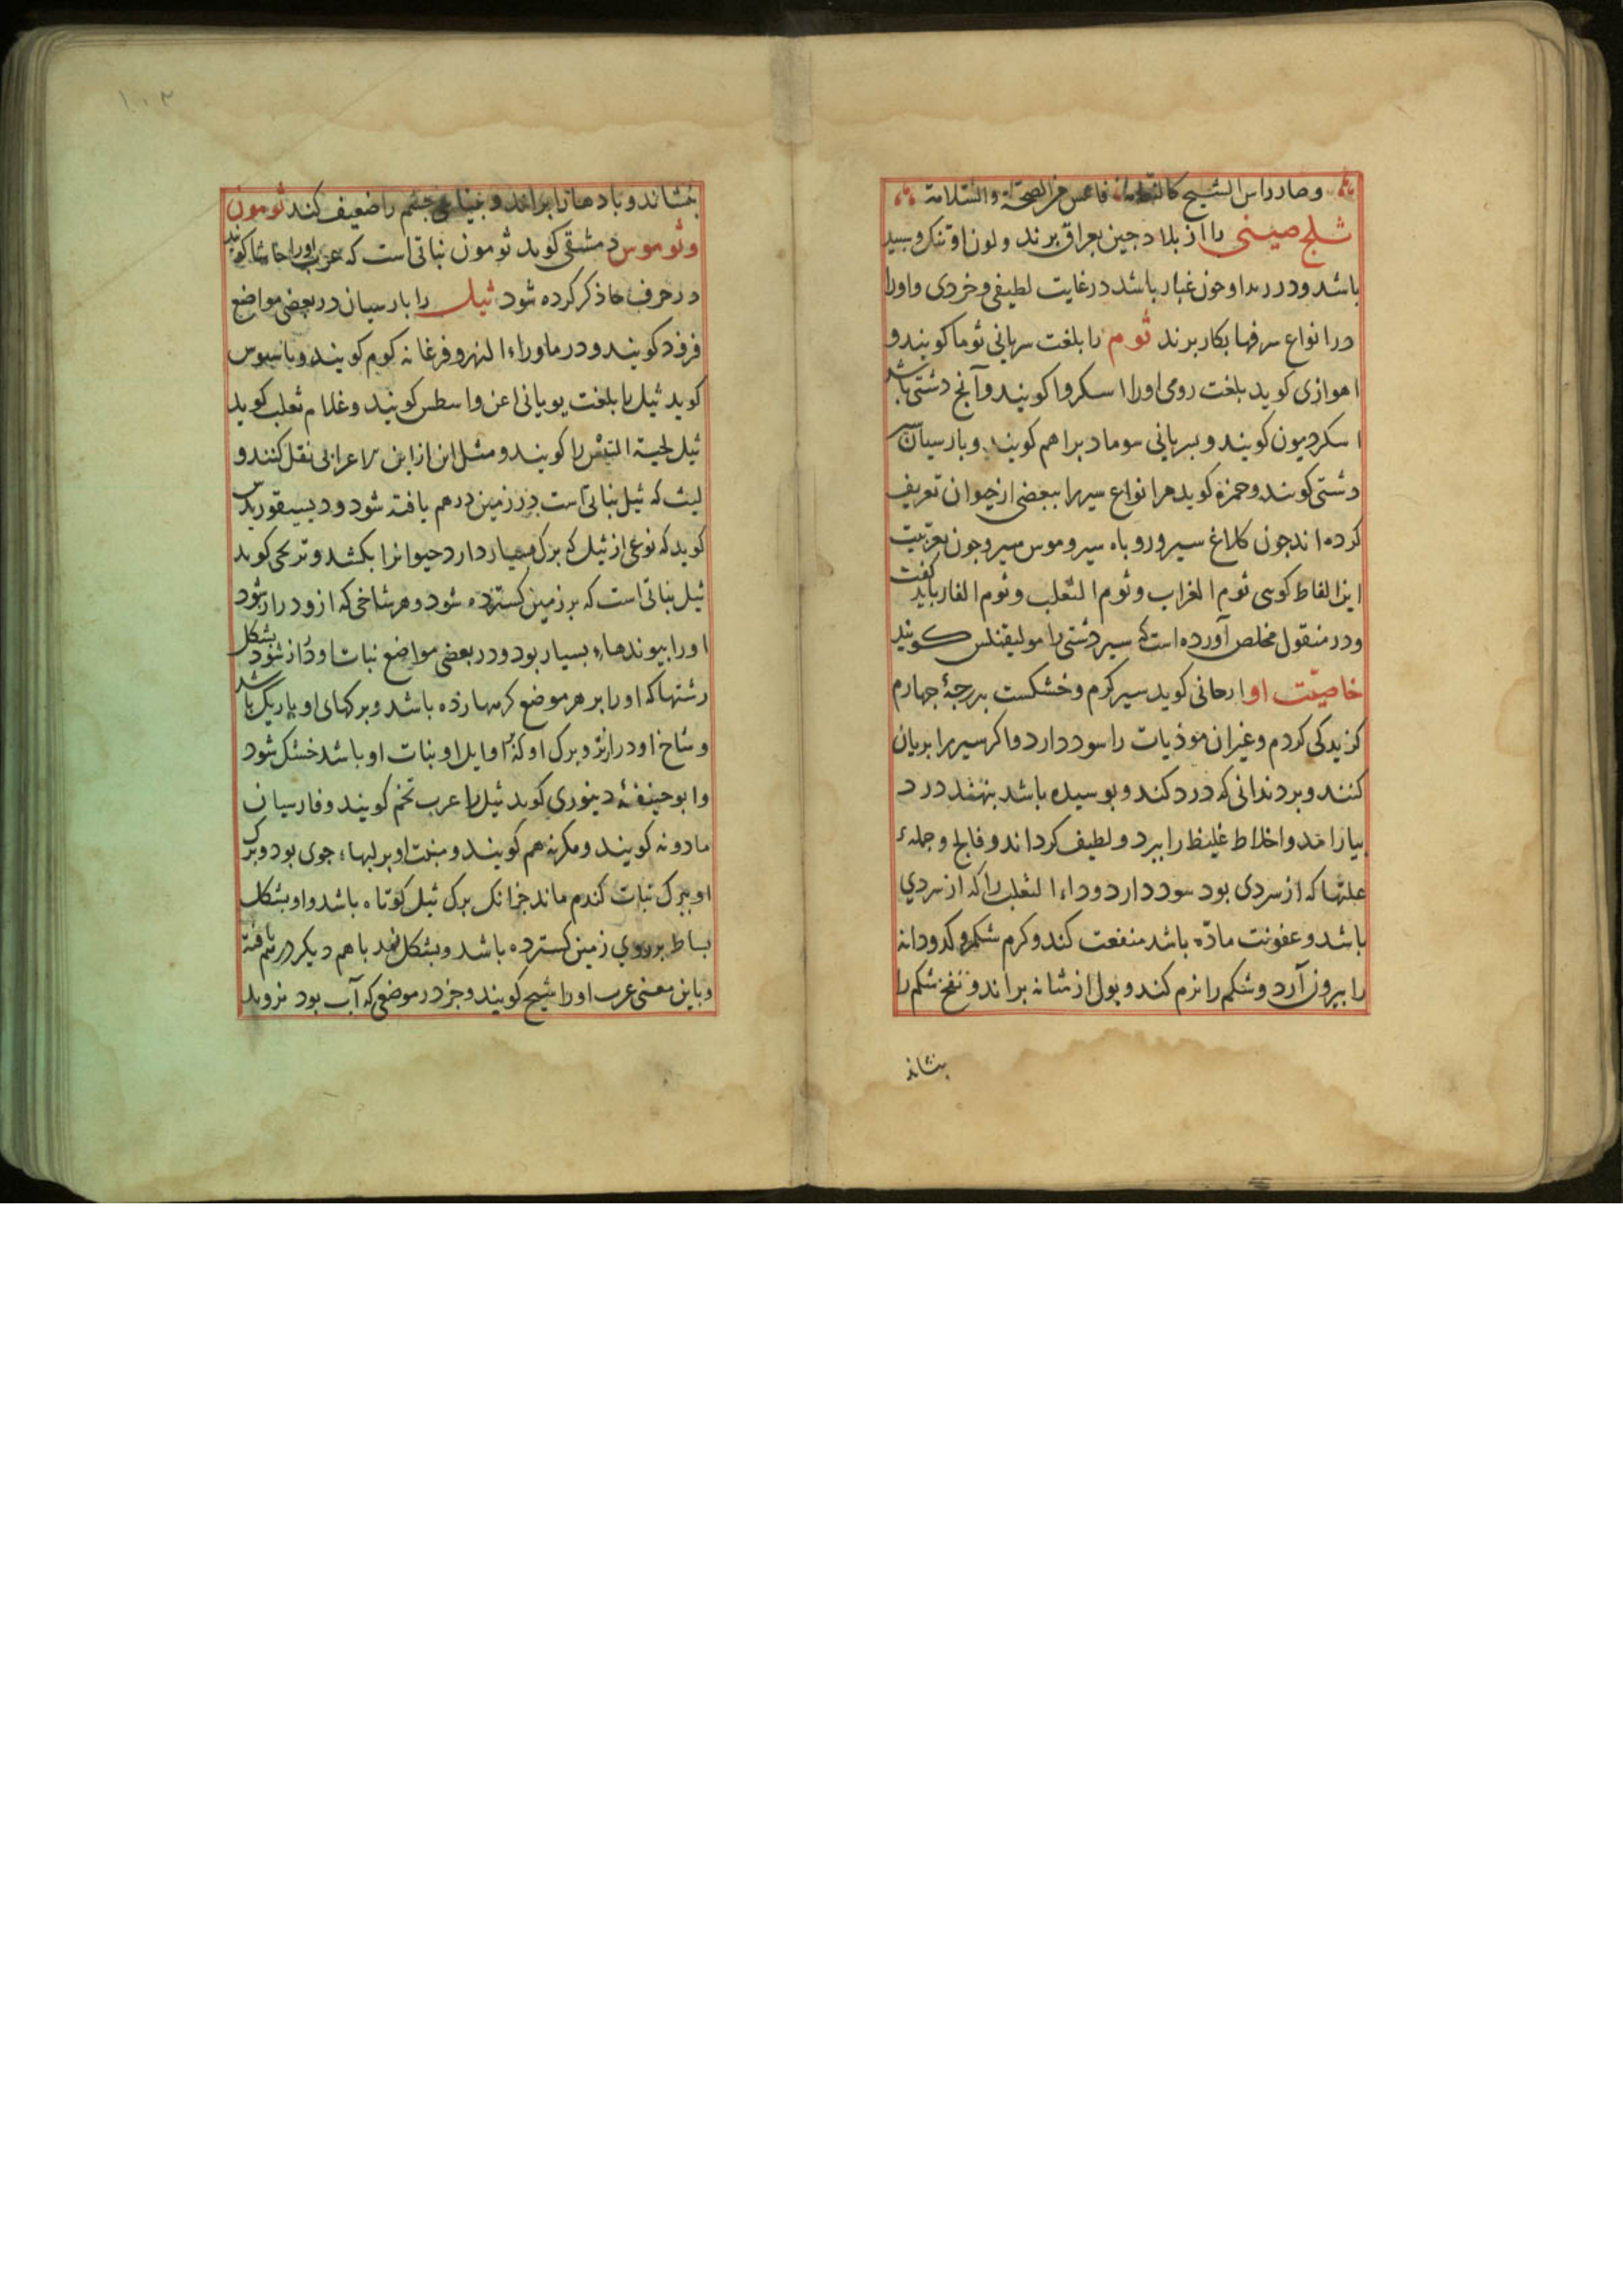 وصار راس الشیح کالثغامة فا من الصحة والسلامة
ثلج صینی را از بلاد جین بعراق برند و لون او تنک و سبید
باشد ودر او جون غبار باشد در غایت لطیفی وخردی واورا
در انواع سرفها بکار برند ثوم را بلغت سریانی ثوما کویند و
اهوازی کوید بلغت رومی اورا اسکروا کویند وآنج دشتی باشد
اسکردیون کویند و بسریانی سوما دبرا هم کویند و بارسیان سیر
دشتی کویند وحمزه کوید هر انواع سیر را ببعضی از حیوان تعریف
کرده اند جون کلاغ سیر وروباه سیر وموس سیر وجون بعربیت
این الفاظ کوسی ثوم الغراب وثوم الثعلب وثوم الفار باید کفت
ودر منقول مخلص آورده است که سیر دشتی را مولیقنلس کویند
خاصیت او ارجانی کوید سیر کرم وخشکست بدرجهٔ جهارم
کزیدکی کژدم وغیر ان موذیات را سود دارد واکر سیر را بریان
کنند وبر دندانی که درد کند وبوسیده باشد بنهند درد
بیارامد واخلاط غلیظ را ببرد ولطیف کرداند وفالج وجملهء
علتها که از سردی بود سود دارد وداء الثعلب را که از سردی
باشد وعفونت مادّه باشد منفعت کند وکرم شکم وکدودانه
را بیرون آرد وشکم را نرم کند وبول از مثانه براند ونفخ شکم را
بنشاند
بنشاند وبادها را براند و بینایی جشم را ضعیف کند ثومون
وثوموس دمشقی کوید ثومون نباتی است که عرب اورا حاشا کویند
در حرف حا ذکر کرده شود ثیل را بارسیان در بعضی مواضع
فرزد کویند ودر ماوراء النهر وفرغانه کوم کویند وباسیوس
کوید ثیل را بلغت یویانی اعن واسطس کویند وغلام ثعلب کوید
ثیل لحیة التیس را کویند ومثل این از ابن الاعرابی نقل کنند و
لیث که ثیل نباتی است در زمین درهم یافته شود ودیسقوریدس
کوید که نوعی از ثیل که برک بسیار دارد حیوانرا بکشد وترنجی کوید
ثیل نباتی است که بر زمین کسترده شود وهر شاخی که ازو دراز شود
اورا بیوندهاء بسیار بود ودر بعضی مواضع نبات او دراز شود بشکل
رشتها که اورا بر هر موضع کرهها زده باشد وبرکهای او باریک باشد
وشاخ او درازتر وبرک او که اوایل او نبات او باشد خشک شود
وابو حنیفهٔ دینوری کوید ثیل را عرب نجم کویند وفارسیان
مادونه کویند ومکرنه هم کویند ومنبت او بر لبهاء جوی بود وبرک
او ببرک نبات کندم ماند جز انک برک ثیل کوتاه باشد واو بشکل
بساط بر روی زمین کسترده باشد وبشکل نمد باهم دیکر درهم بافته
وباین معنی عرب اورا شیح کویند وجز در موضعی که آب بود نروید
۱۰۳